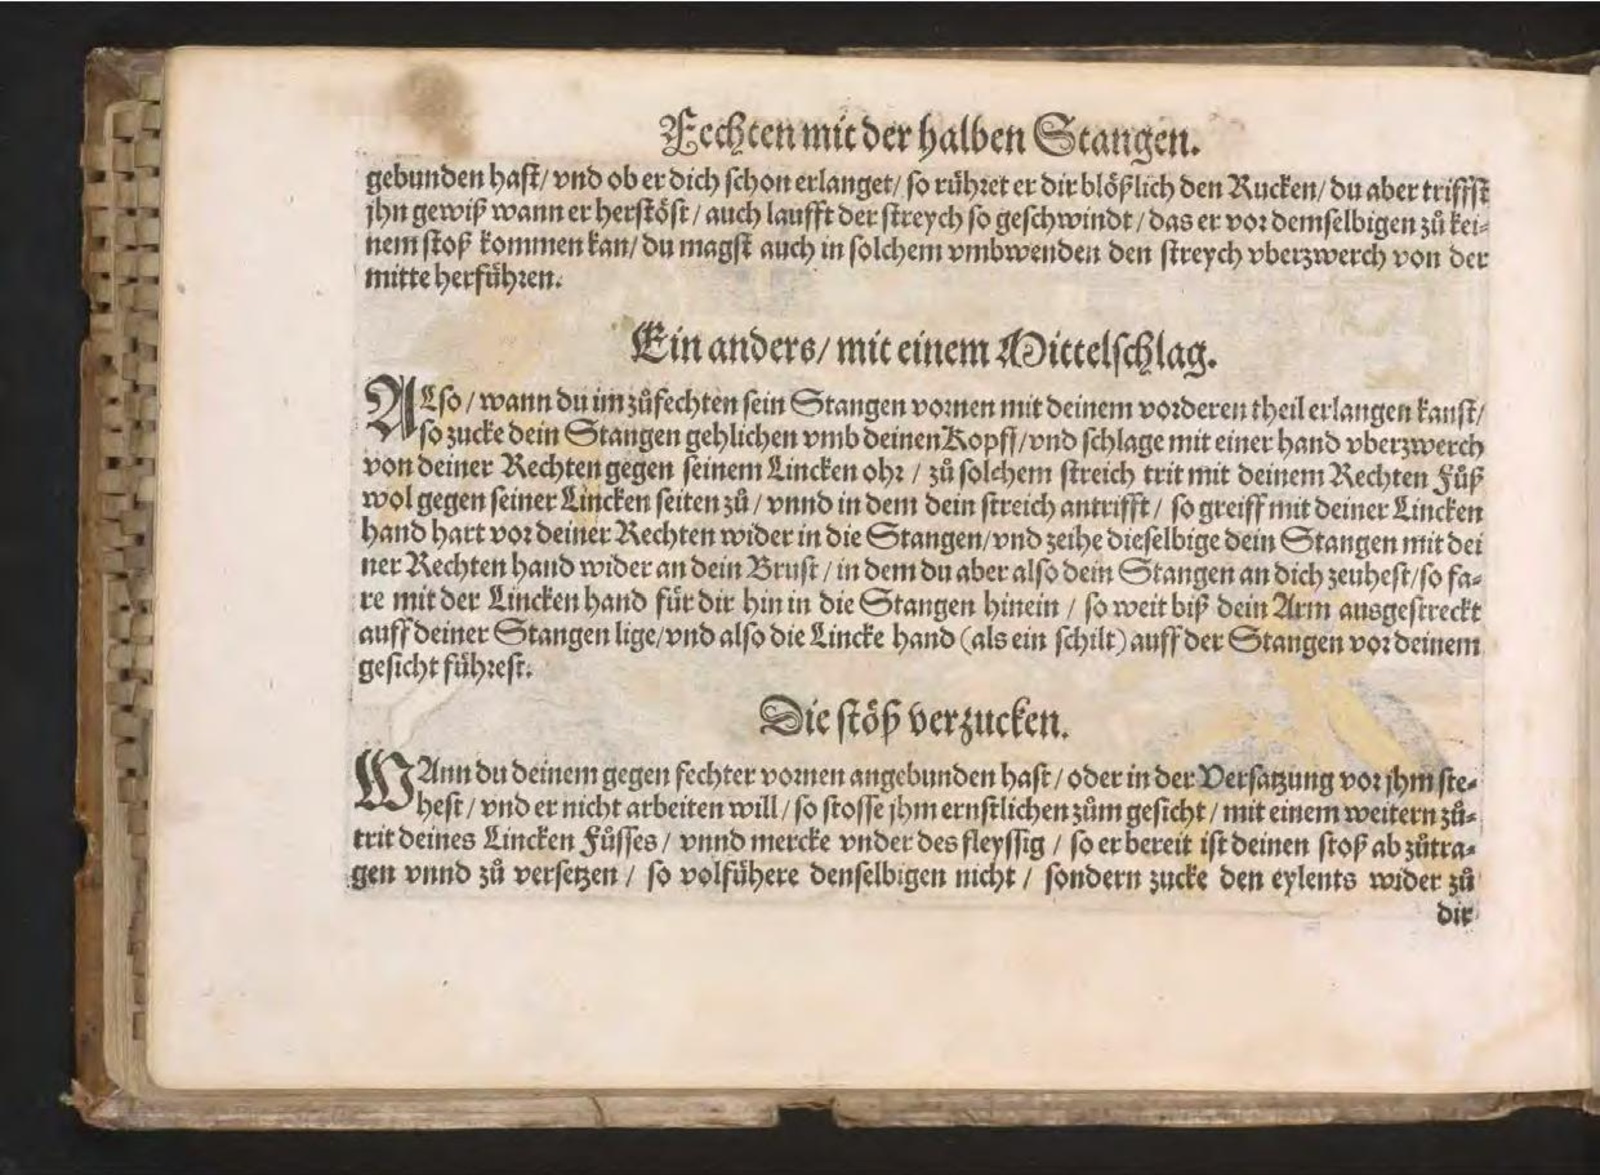 Fechten mit der halben Stangen.
gebunden hast/ vnd ob er dich schon erlanget/ so rühret er dir blößlich den Rucken/ du aber triffst
jhn gewiß wann er herstöst/ auch laufft der streych so geschwindt/ das er vor demselbigen zů kei-
nem stoß kommen kan/ du magst auch in solchem vmbwenden den streych vberzwerch von der
mitte herführen.
Ein anders/ mit einem Mittelschlag.
ALso/ wann du im zůfechten sein Stangen vornen mit deinem vorderen theil erlangen kanst/
so zucke dein Stangen gehlichen vmb deinen Kopff/ vnd schlage mit einer hand vberzwerch
von deiner Rechten gegen seinem Lincken ohr/ zů solchem streich trit mit deinem Rechten Fůß
wol gegen seiner Lincken seiten zů/ vnnd in dem dein streich antrifft/ so greiff mit deiner Lincken
hand hart vor deiner Rechten wider in die Stangen/ vnd zeihe dieselbige dein Stangen mit dei
ner Rechten hand wider an dein Brust/ in dem du aber also dein Stangen an dich zeuhest/ so fa-
re mit der Lincken hand für dir hin in die Stangen hinein/ so weit biß dein Arm ausgestreckt
auff deiner Stangen lige/ vnd also die Lincke hand (als ein schilt) auff der Stangen vor deinem
gesicht führest.
Die stöß verzucken.
WAnn du deinem gegen fechter vornen angebunden hast/ oder in der Versatzung vor jhm ste-
hest/ vnd er nicht arbeiten will/ so stosse jhm ernstlichen zům gesicht/ mit einem weitern zů-
trit deines Lincken Fůsses/ vnnd mercke vnder des fleyssig/ so er bereit ist deinen stoß ab zůtra-
gen vnnd zů versetzen/ so volfühere denselbigen nicht/ sondern zucke den eylents wider zů
dir